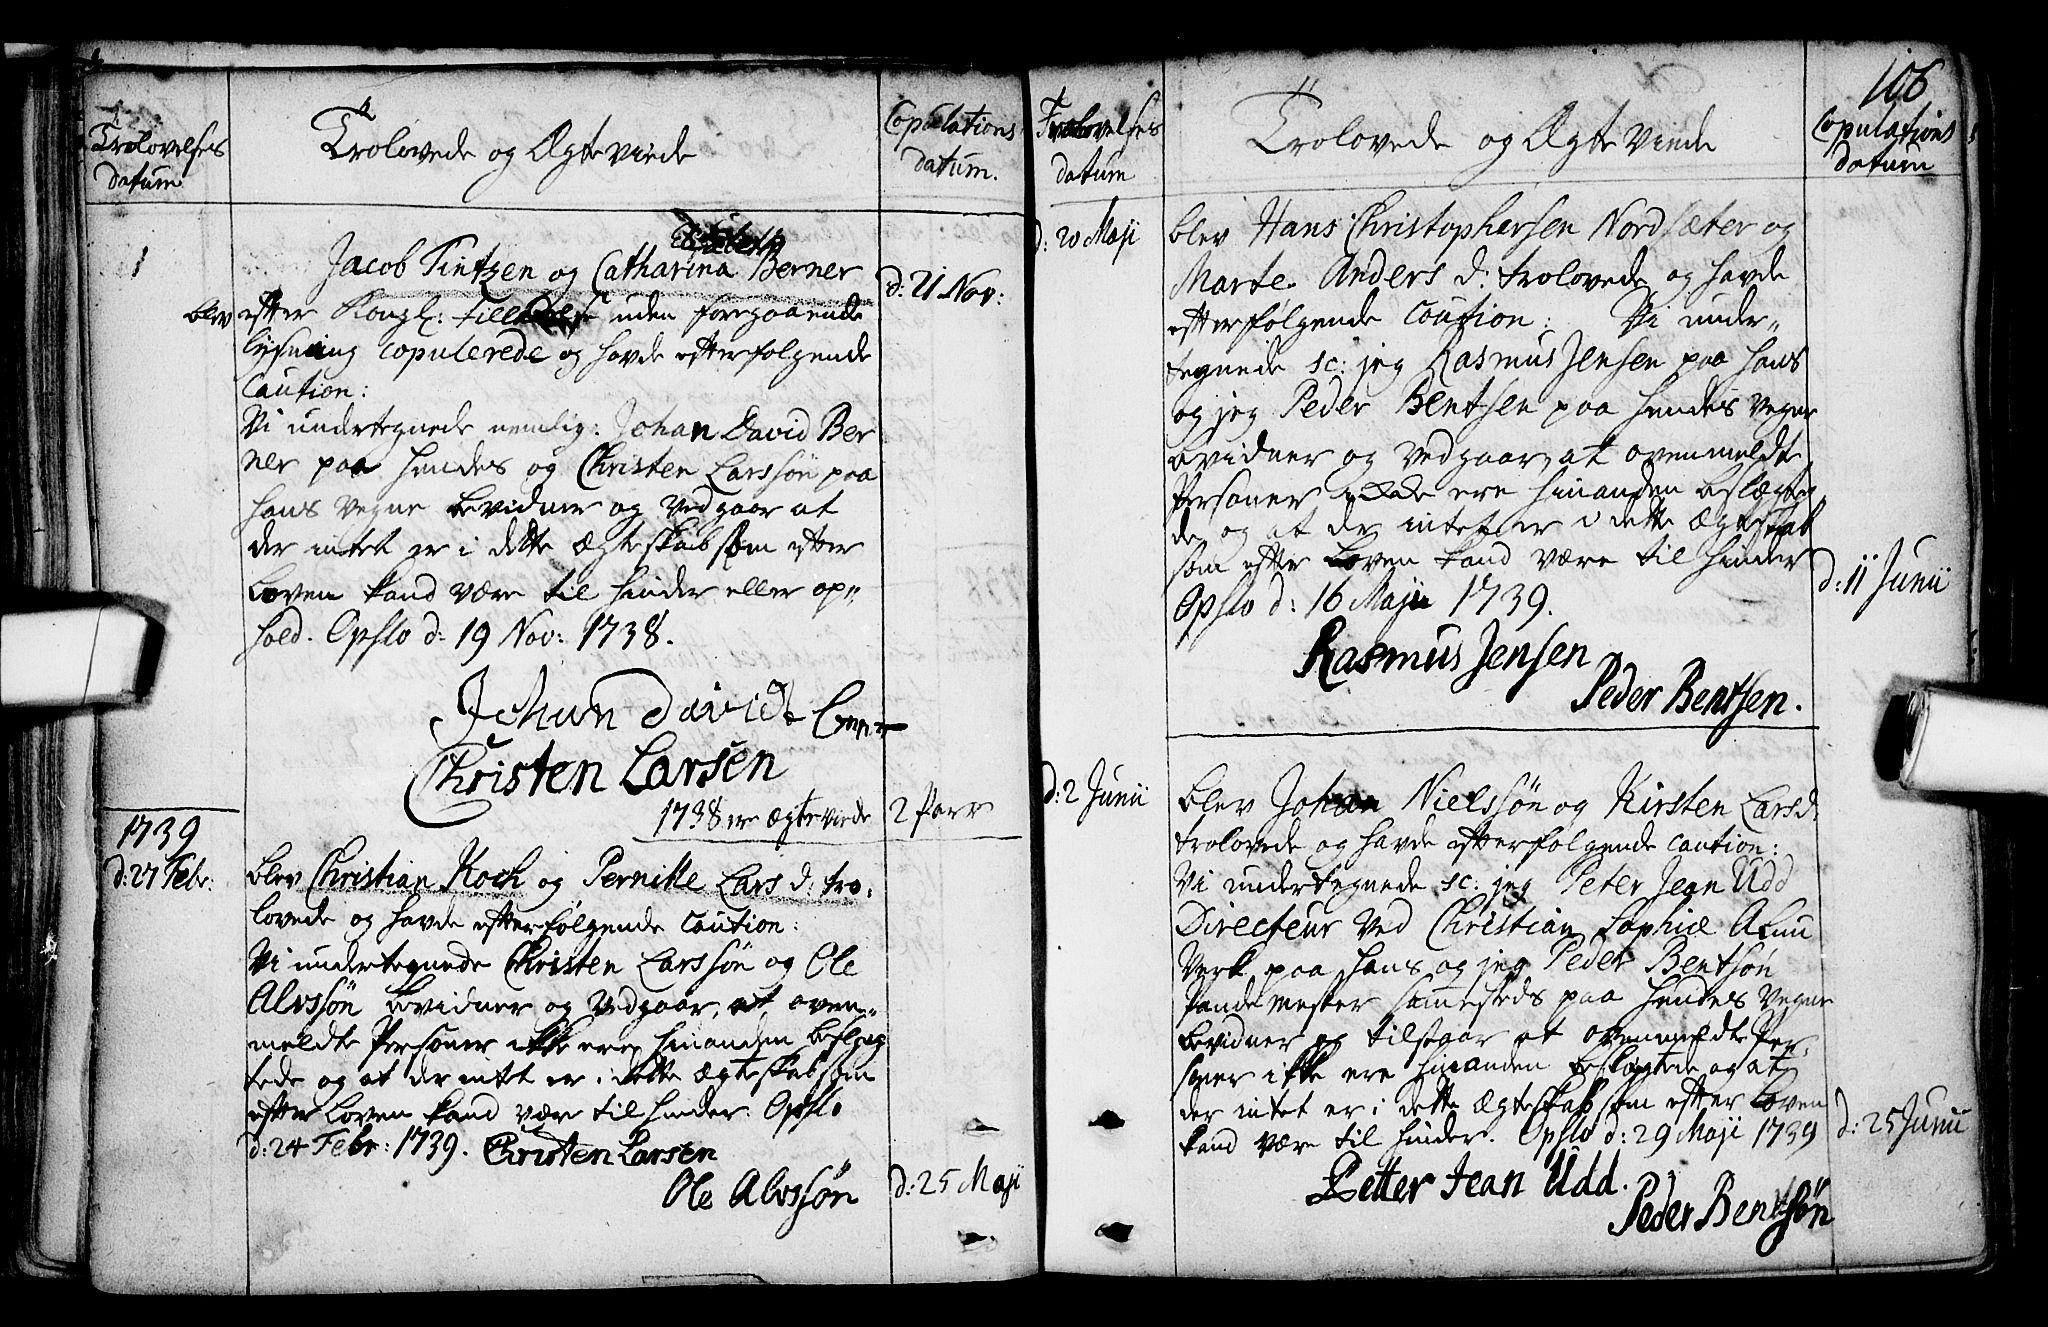 Trolovelses
datum
Trolovede og Ægteviede
Copulations
datum.
Jacob Tintzen og Catharina Berner
d: 21 Nov:
blev efter Kongl: uden foregaaende
lysning copulerede og havde efterfølgende
Caution:
Vi undertegnede nemlig: Johan David Ber
ner paa hendes og Christen Larssøn paa
hans Vegne bevidner og Vedgaar at
der intet er i dette Ægteskab som efter
Loven kand være til hinder eller op„
hold. Opslo d: 19 Nov: 1738.
Johan David
Christen Larsen
1738 ere Ægteviede 2 Parr
1739
d: 27 Febr:
blev Christian Koch og Pernille Lars d: tro„
lovede og havde efterfølgende Caution:
Vi undertegnede Christen Larssøn og Ole
Alvssøn bevidner og Vedgaar, at oven„
meldte Personer ikke ere hinanden beslæg
tede og at der intet er i dette Ægteskab som
efter Loven kand være til hinder. Opslo
d: 24 Febr: 1739. Christen Larsen
Ole Alvssøn
d: 25 Maji
106
Trolovelses
datum
Trolovede og Ægte Viede
Copulations
datum
d: 20 Maji
blev Hans Christophersen Nordsæter og
Marte Anders d: trolovede og havde
efterfølgende Caution: Vi under„
tegnede sc: jeg Rasmus Jensen paa hans
og jeg Peder Bentsen paa hendes Vegne
bevidner og Vedgaar, at ovenmeldte
Personer ikke ere hinanden beslægte
de og at der intet er i dette Ægteskab
som efter Loven kand være til hinder
Opslo d: 16 Maji 1739.
d: 11 Junii
Rasmus Jensen
Peder Bentsen.
d: 2 Junii
blev Johan Nielssøn og Kirsten Larsd.
trolovede og havde efterfølgende Caution:
Vi undertegnede sc: jeg Peter Jean Udd
Directeur Ved Christian Sophiæ Alun
Verk paa hans og jeg Peder Bentsøn
Pandemester sammesteds paa hendes Vegne
bevidner og tilstaar at ovenmeldte Per„
soner ikke ere hinanden beslægtede og at
der intet er i dette Ægteskab som efter Loven
kand være til hinder. Opslo d: 29 Maji 1739
d: 25 Junii
Petter Jean Udd.
Peder Bentsøn